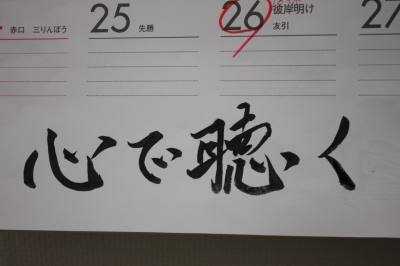 赤口 三りんぼう 25 先勝 26 彼岸明け 27
友引
心で聴く